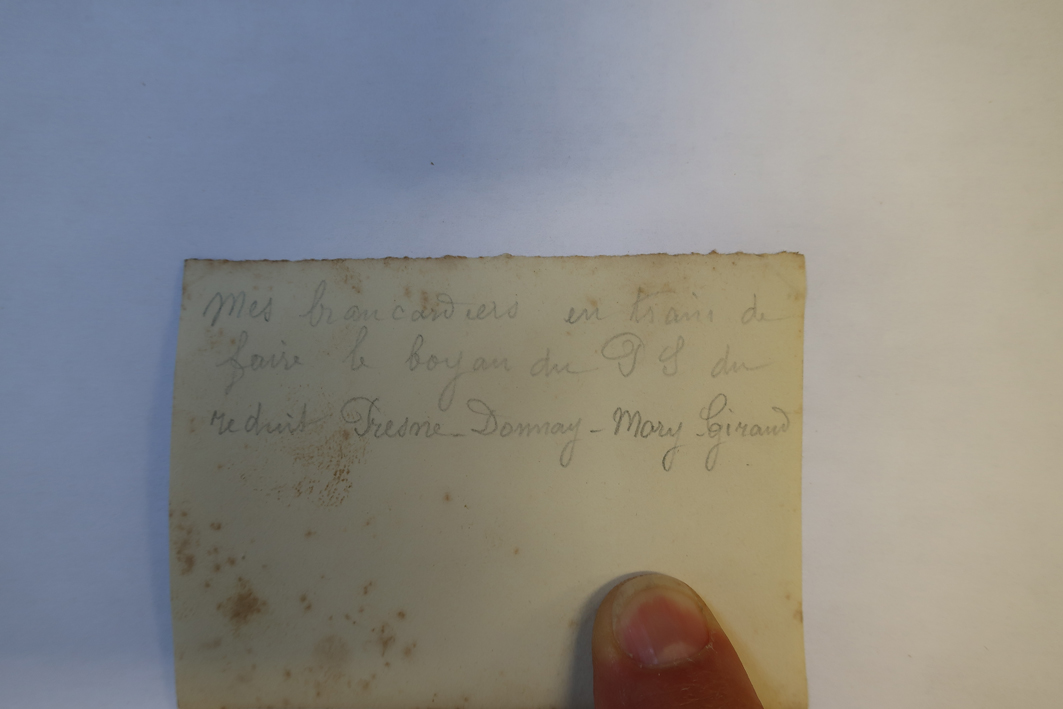 Mes brancardiers en train de
faire le boyau du P S du
reduit Fresne - Donnay - Mary - Giraud